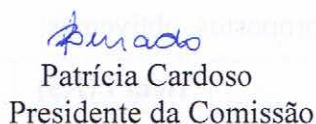 Patrícia Cardoso
Presidente da Comissão